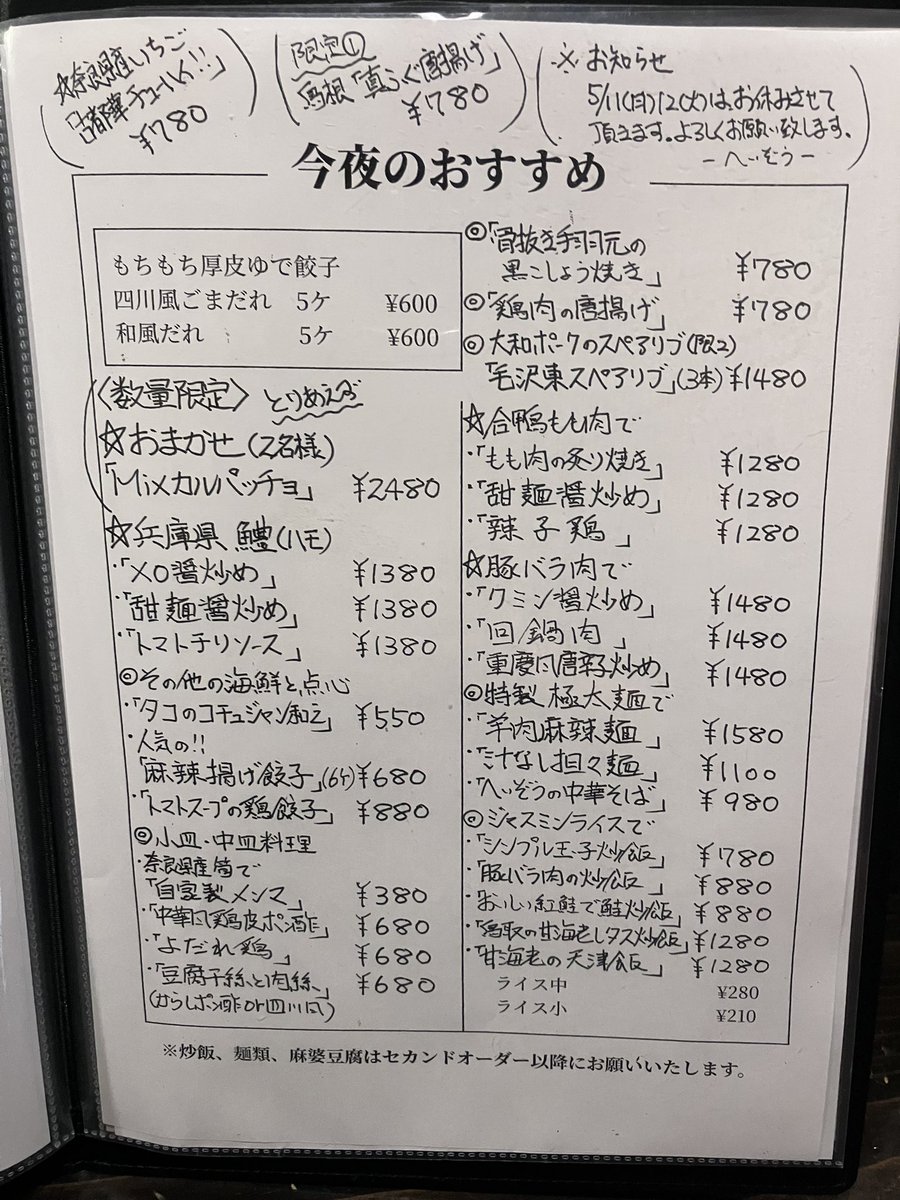 ☆奈良県産いちご
「古都華チューハイ!!」
¥780
限定①
島根「真ふぐ唐揚げ」
¥780
※お知らせ
5/11(月)12(火)は、お休みさせて
頂きます。よろしくお願い致します。
-へいぞう-
今夜のおすすめ
もちもち厚皮ゆで餃子
四川風ごまだれ 5ケ ¥600
和風だれ 5ケ ¥600
〈数量限定〉とりあえず
☆おまかせ(2名様)
「Mixカルパッチョ」 ¥2480
☆兵庫県 鱧(ハモ)
・「XO醤炒め」 ¥1380
・「甜麺醤炒め」 ¥1380
・「トマトチリソース」 ¥1380
◎その他の海鮮と点心
・「タコのコチュジャン和え」 ¥550
・人気の!!
「麻辣揚げ餃子」(6ケ) ¥680
・「トマトスープの鶏餃子」 ¥880
◎小皿・中皿料理
・奈良県産筍で
「自家製メンマ」 ¥380
・「中華風鶏皮ポン酢」 ¥680
・「よだれ鶏」 ¥680
・「豆腐干絲と肉絲」 ¥680
(からしポン酢or四川風)
◎「骨抜き手羽元の
黒こしょう焼き」 ¥780
◎「鶏肉の唐揚げ」 ¥780
◎大和ポークのスペアリブ(限2)
「毛沢東スペアリブ」(3本) ¥1480
☆合鴨もも肉で
・「もも肉の炙り焼き」 ¥1280
・「甜麺醤炒め」 ¥1280
・「辣子鶏」 ¥1280
☆豚バラ肉で
・「クミン醤炒め」 ¥1480
・「回鍋肉」 ¥1480
・「重慶風唐辛子炒め」 ¥1480
◎特製 極太麺で
・「羊肉麻辣麺」 ¥1580
・「汁なし担々麺」 ¥1100
・「へいぞうの中華そば」 ¥980
◎ジャスミンライスで
・「シンプル玉子炒飯」 ¥780
・「豚バラ肉の炒飯」 ¥880
・「おいしい紅鮭で鮭炒飯」 ¥880
・「鳥取の甘海老レタス炒飯」 ¥1280
・「甘海老の天津飯」 ¥1280
ライス中 ¥280
ライス小 ¥210
※炒飯、麺類、麻婆豆腐はセカンドオーダー以降にお願いいたします。